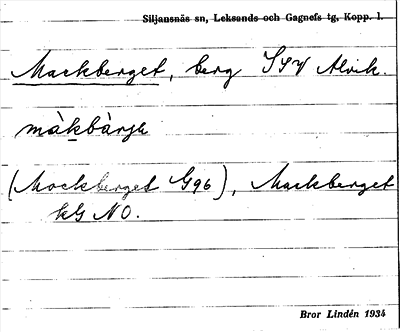 Siljansnäs sn, Leksands och Gagnefs tg, Kopp. l.
Mackberget, berg SSV Alvik.
màkbàrjɛ
(Mockberget G96), Mackberget
kG NO.
Bror Lindén 1934